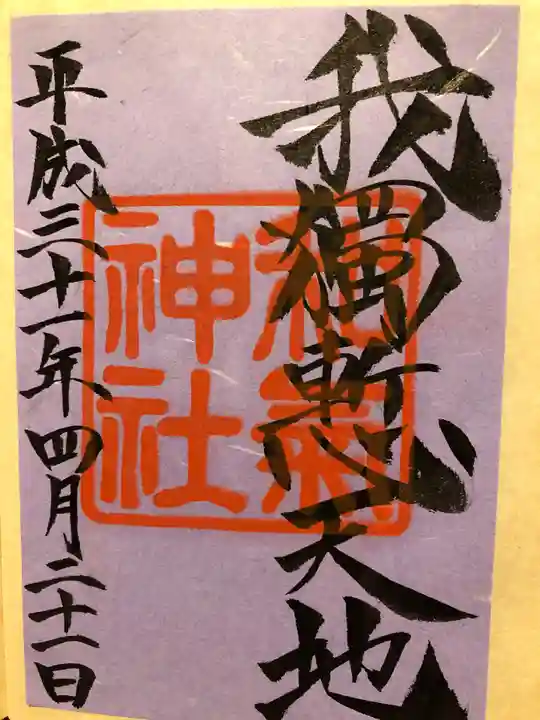 我獨慙天地
和氣
神社
平成三十一年四月二十一日